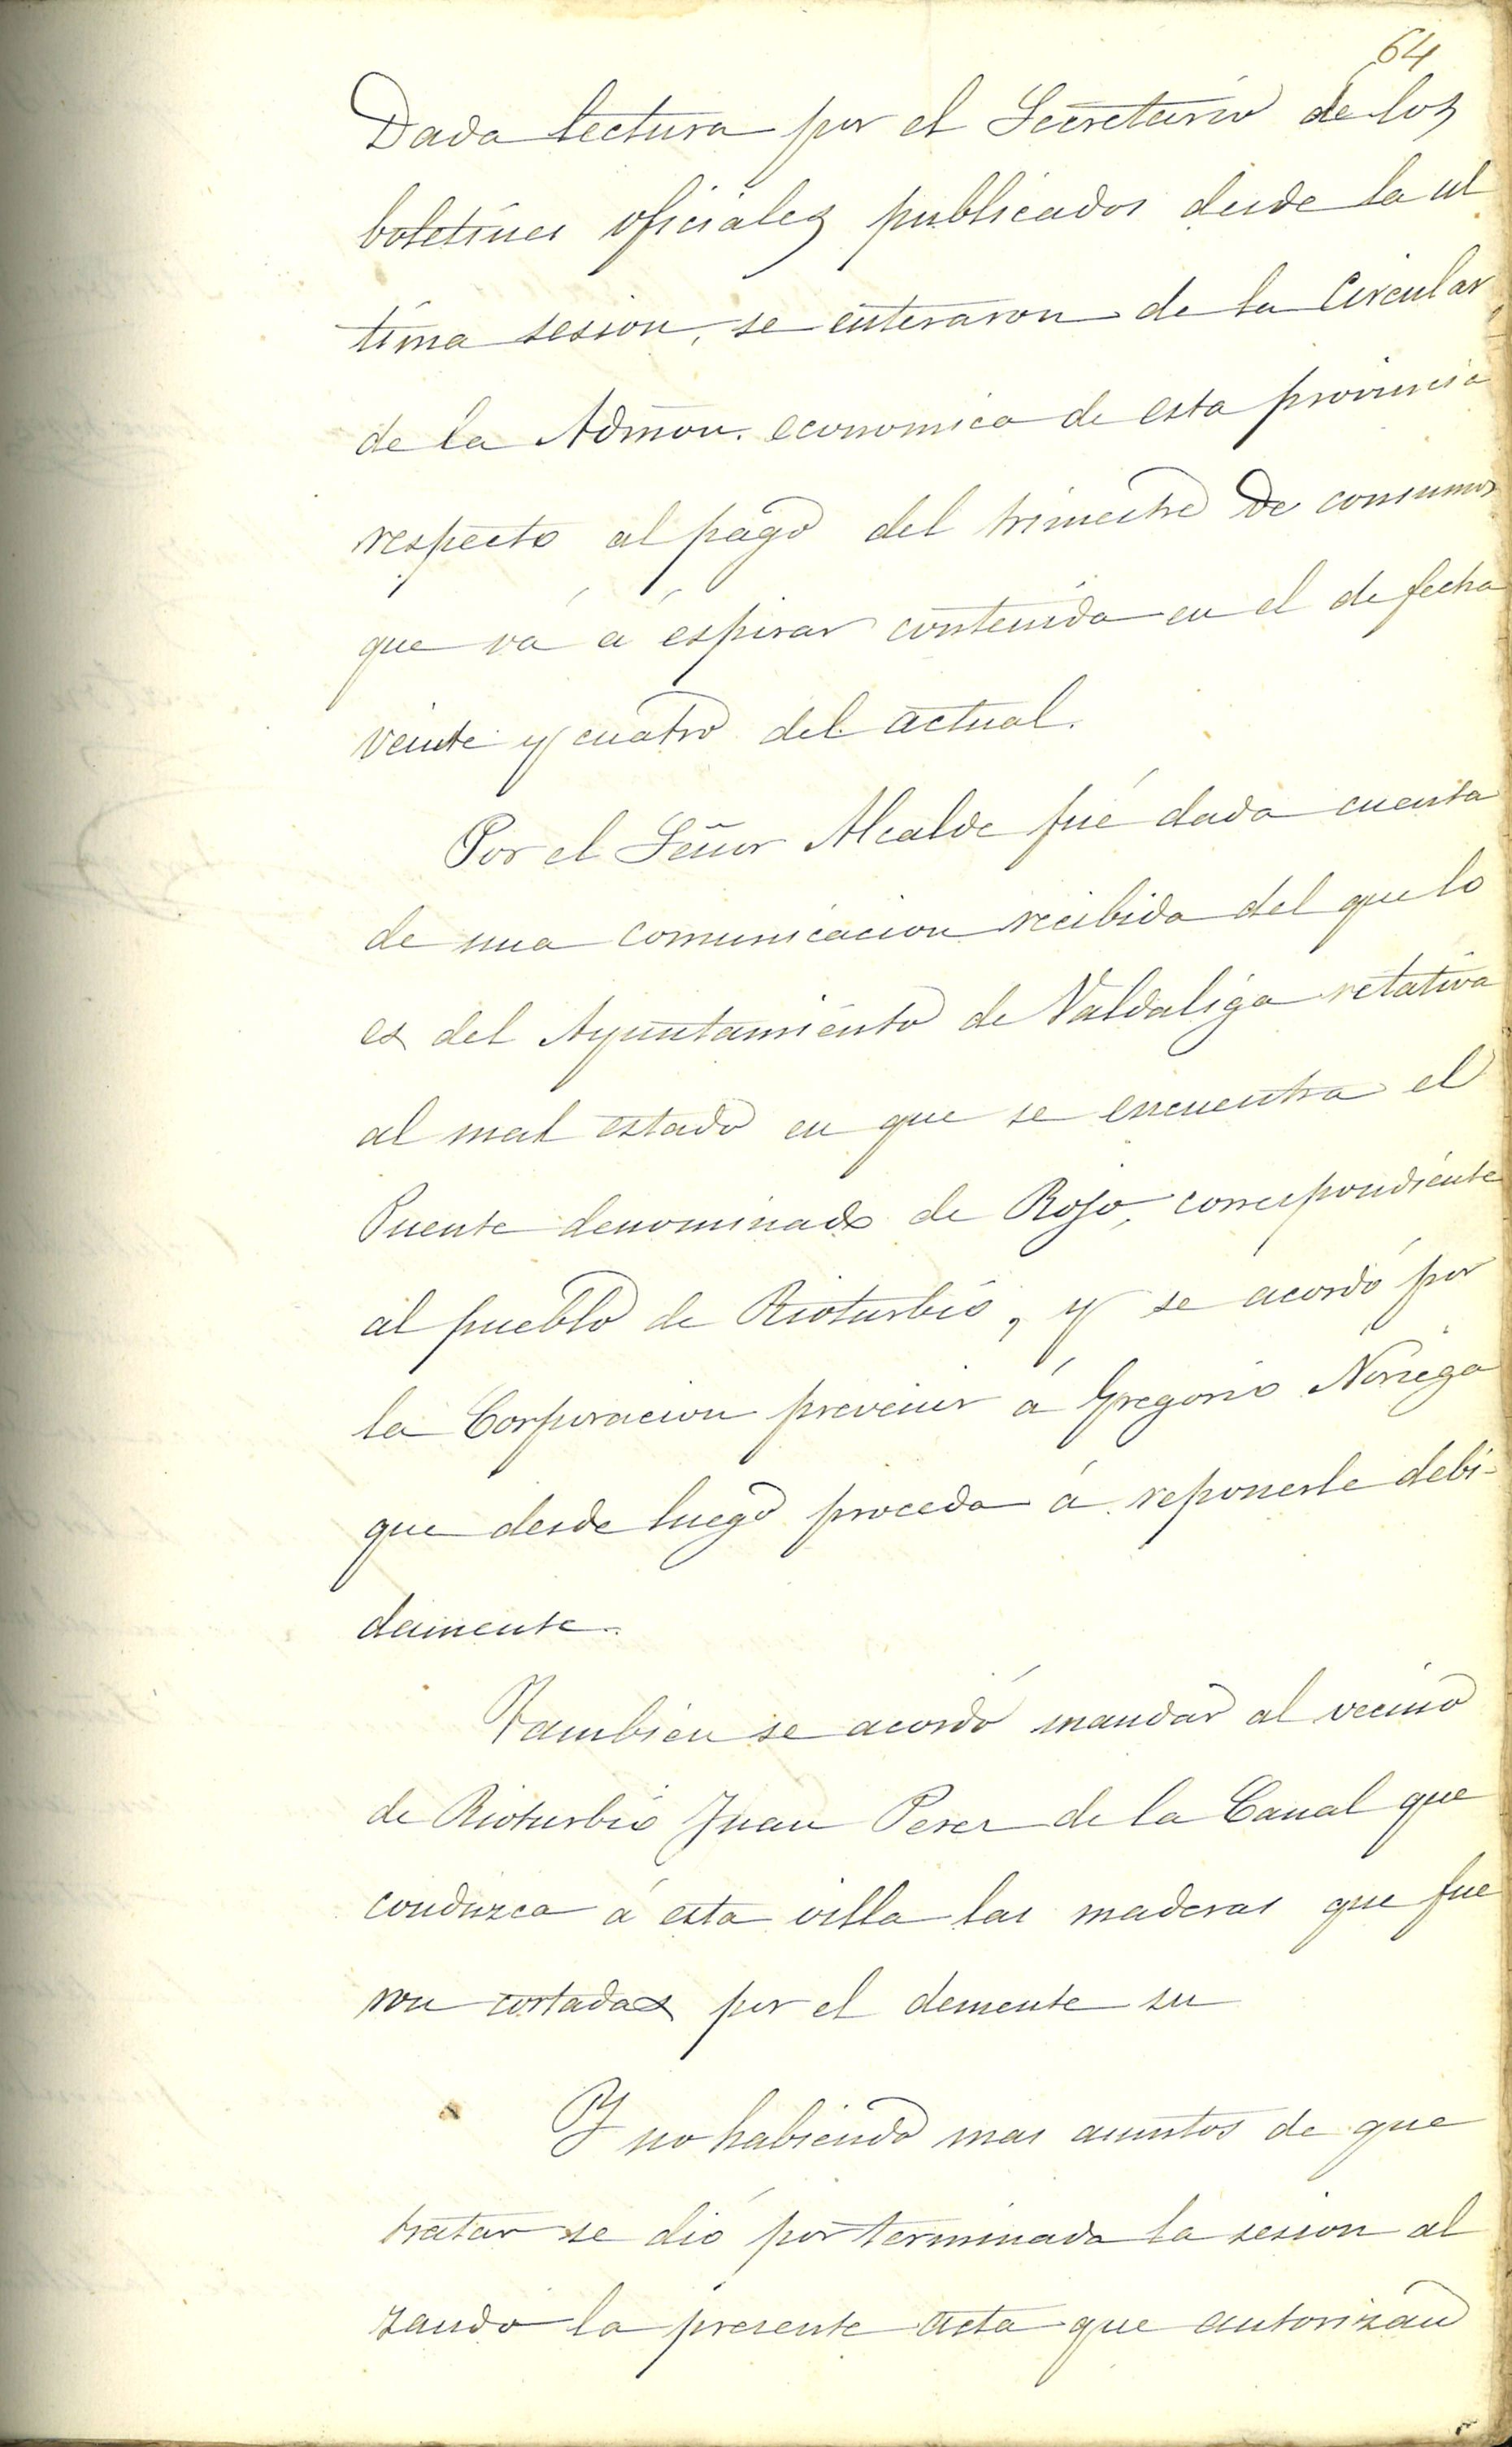 64
Dada lectura por el Secretario de los
boletines oficiales publicados desde la ul
tima sesion, se enteraron de la Circular
de la Admon. economica de esta provincia
respecto al pago del trimestre de consumos
que vá á espirar contenida en el de fecha
veinte y cuatro del actual.
Por el Señor Alcalde fué dada cuenta
de una comunicacion recibida del que lo
es del Ayuntamiento de Valdaliga relativa
al mal estado en que se encuentra el
Puente denominado de Rojo, correspondiente
al pueblo de Rioturbio, y se acordó por
la Corporacion prevenir á Gregorio Noriega
que desde luego proceda á reponerle debi-
damente.
Tambien se acordó mandar al vecino
de Rioturbio Juan Perez de la Canal que
conduzca á esta villa las maderas que fue
ron cortadas por el demente su
Y no habiendo mas asuntos de que
tratar se dió por terminada la sesion al
zando la presente acta que autorizan